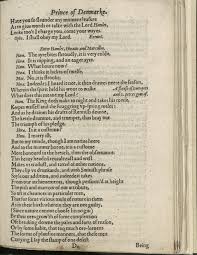 Prince of Denmarke.
Haue you ſo ſlaunder any moment leaſure
As to giue words or talke with the Lord Hamlet,
Looke too't I charge you, come your wayes.
Ophe. I ſhall obey my Lord. Exeunt.
Enter Hamlet, Horatio and Marcellus.
Ham. The ayre bites ſhroudly, it is very colde.
Hora. It is nipping, and an eager ayre.
Ham. What houre now?
Hora. I thinke it lackes of twelfe.
Mar. No, it is ſtrooke.
Hora. Indeede; I heard it not, it then drawes neere the ſeaſon,
Wherein the ſpirit held his wont to walke A floriſh of trumpets
What does this meane my Lord? and 2. peeces goes of.
Ham. The King doth wake to night and takes his rowſe.
Keepes waſſell and the ſwaggring vp-ſpring reeles:
And as he draines his drafts of Renniſh downe,
The kettle drumme, and trumpet, thus bray out
The triumph of his pledge.
Hora. Is it a cuſtome?
Ham. I marry iſt,
But to my minde, though I am natiue heere
And to the manner borne, it is a cuſtome
More honourd in the breach, then the obſeruance.
This heauy headed reueale eaſt and weſt
Makes vs traduſt, and taxed of other nations,
They clip vs drunkards, and with Swiniſh phraſe
Soyle our addition, and indeede it takes
From our atchieuements, though perform'd at height
The pith and marrow of our attribute,
So oft it chaunces in particuler men,
That for ſome vicious mole of nature in them
As in their birth wherein they are not guilty,
(Since nature cannot chooſe his origin)
By their ore-grow'th of ſome complextion
Oft breaking downe the pales and forts of reaſon,
Or by ſome habit, that too much ore-leauens
The forme of plauſiue manners, that theſe men
Carrying I ſay the ſtamp of one defect
Being